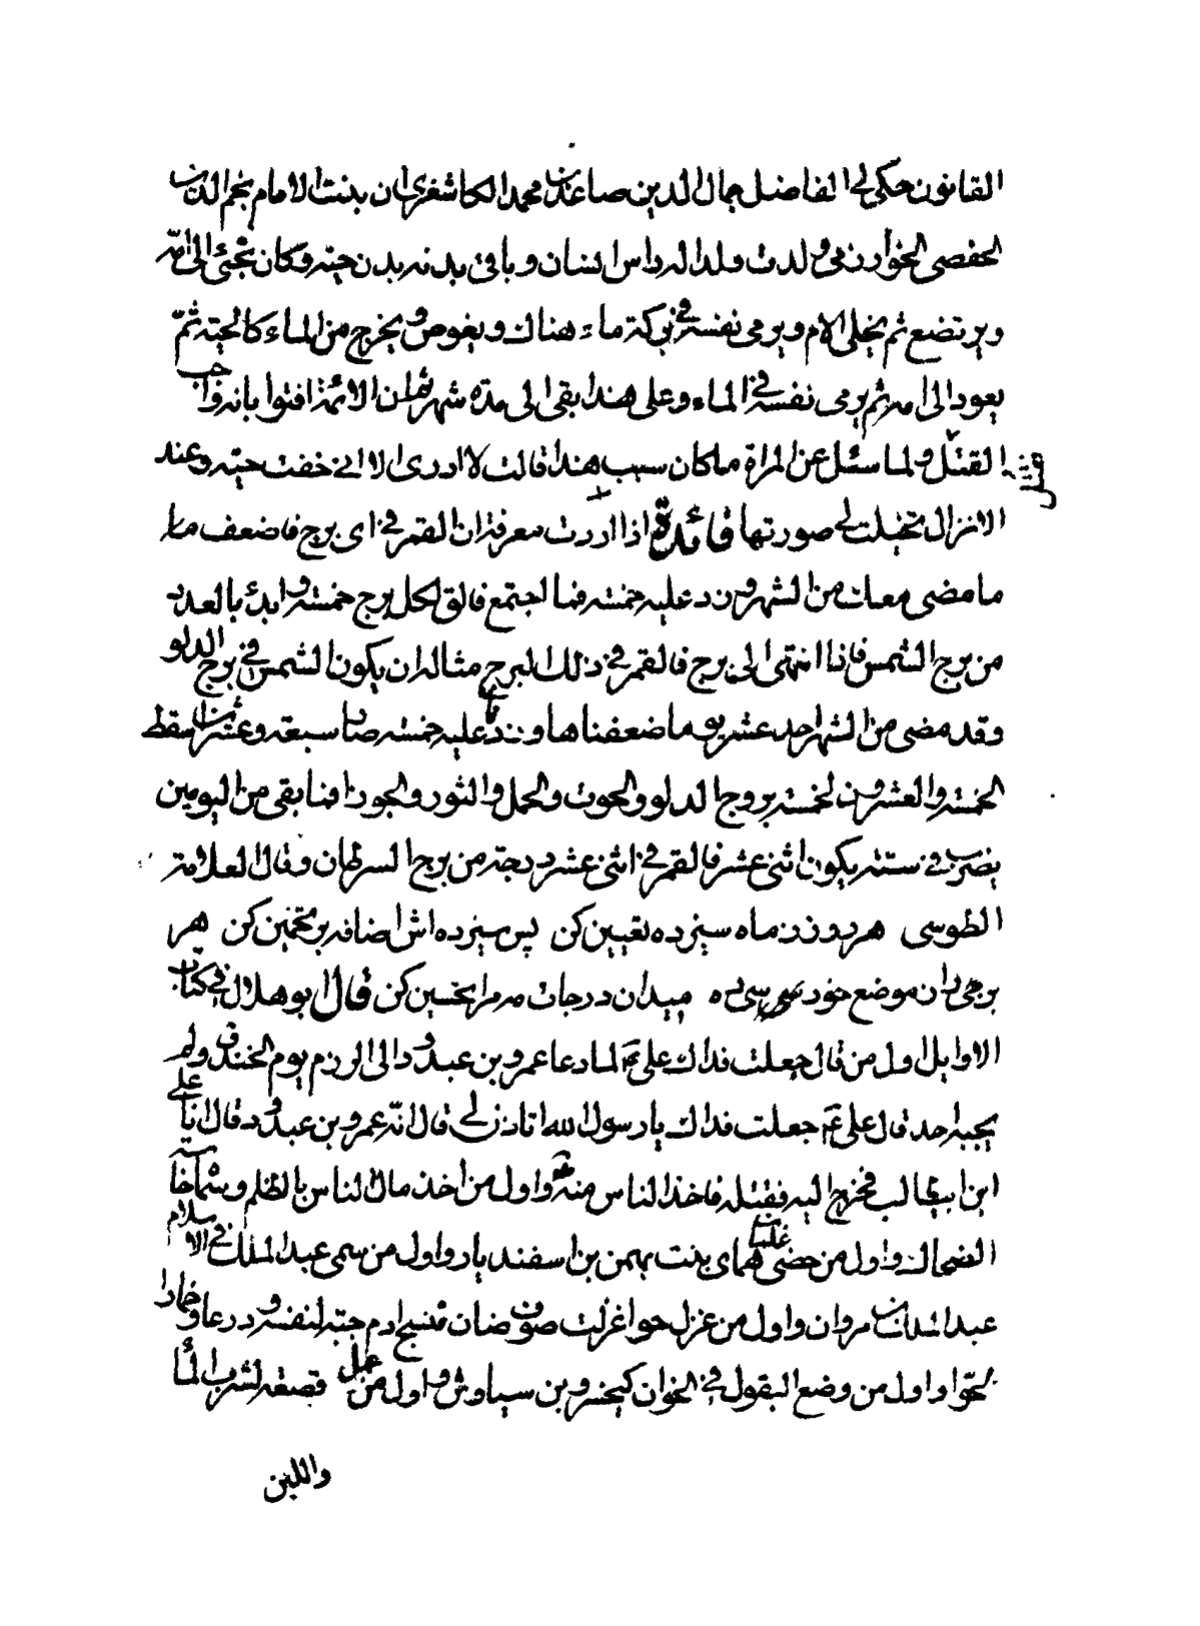 القانون حكى لى الفاضل جمال الدين صاعد بن محمد الكاشغرى ان بنت الامام نجم الدين
الحفصى الخوارزمى ولدت ولدا له راس انسان و باقى بدنه بدن حية و كان تجئ الى امه
و يرتضع ثم يخلى الام و يرمى نفسه فى بركة ماء هناك و يغوص و يخرج من الماء كالحية ثم
يعود الى امه ثم يرمى نفسه فى الماء و على هذا بقى الى مدة شهر ثم ان الائمة افتوا بانه واجب
القتل و لما سئل عن المراة ما كان سبب هذا قالت لا ادرى الا انى خفت حية و عند
الانزال تخيلت لى صورتها فائدة اذا اردت معرفة ان القمر فى اى برج فاضعف ما
ما مضى معك من الشهر و زد عليه خمسة فما اجتمع فالق لكل برج خمسة و ابدئ بالعدد
من برج الشمس فاذا انتهى الى برج فالقمر فى ذلك البرج مثاله ان يكون الشمس فى برج الدلو
و قد مضى من الشهر احد عشر يوما ضعفناها و زدنا عليه خمسة صار سبعة و عشرين اسقط
الخمسة و العشرون لخمسة بروج الدلو و الحوت و الحمل و الثور و الجوزا فما بقى من اليومين
يضرب فى ستة يكون اثنى عشر فالقمر فى اثنى عشر درجة من برج السرطان و قال العلامة
الطوسى هر روز ز ماه سيزده تعيين كن پس سيزده اش اضافه بر تخمين كن هر
برجى دان موضع خود سى بده ميدان درجات مه را تحسين كن قال ابو هلال فى كتاب
الاوايل اول من قال جعلت فداك على ع لما دعا عمرو بن عبد ود الى الرزم يوم الخندق و لم
يجبه احد قال على ع جعلت فداك يا رسول الله اتاذن لى قال انه عمرو بن عبد ود قال انا على
ابن ابيطالب فخرج اليه فقتله فاخذ الناس منه و اول من اخذ مال الناس بالظلم و
الضحاك و اول من همای بنت بهمن بن اسفنديار و اول من سمى عبد الملك فى الاسلام
عبد الملك بن مروان و اول من غزل حوا غزلت صوف ضان فنسج ادم جبة لنفسه و درعا و خمارا
لحوا و اول من وضع البقول فى الخوان كيخسرو بن سياوش و اول من عمل قصعة لشرب الماء
و اللبن